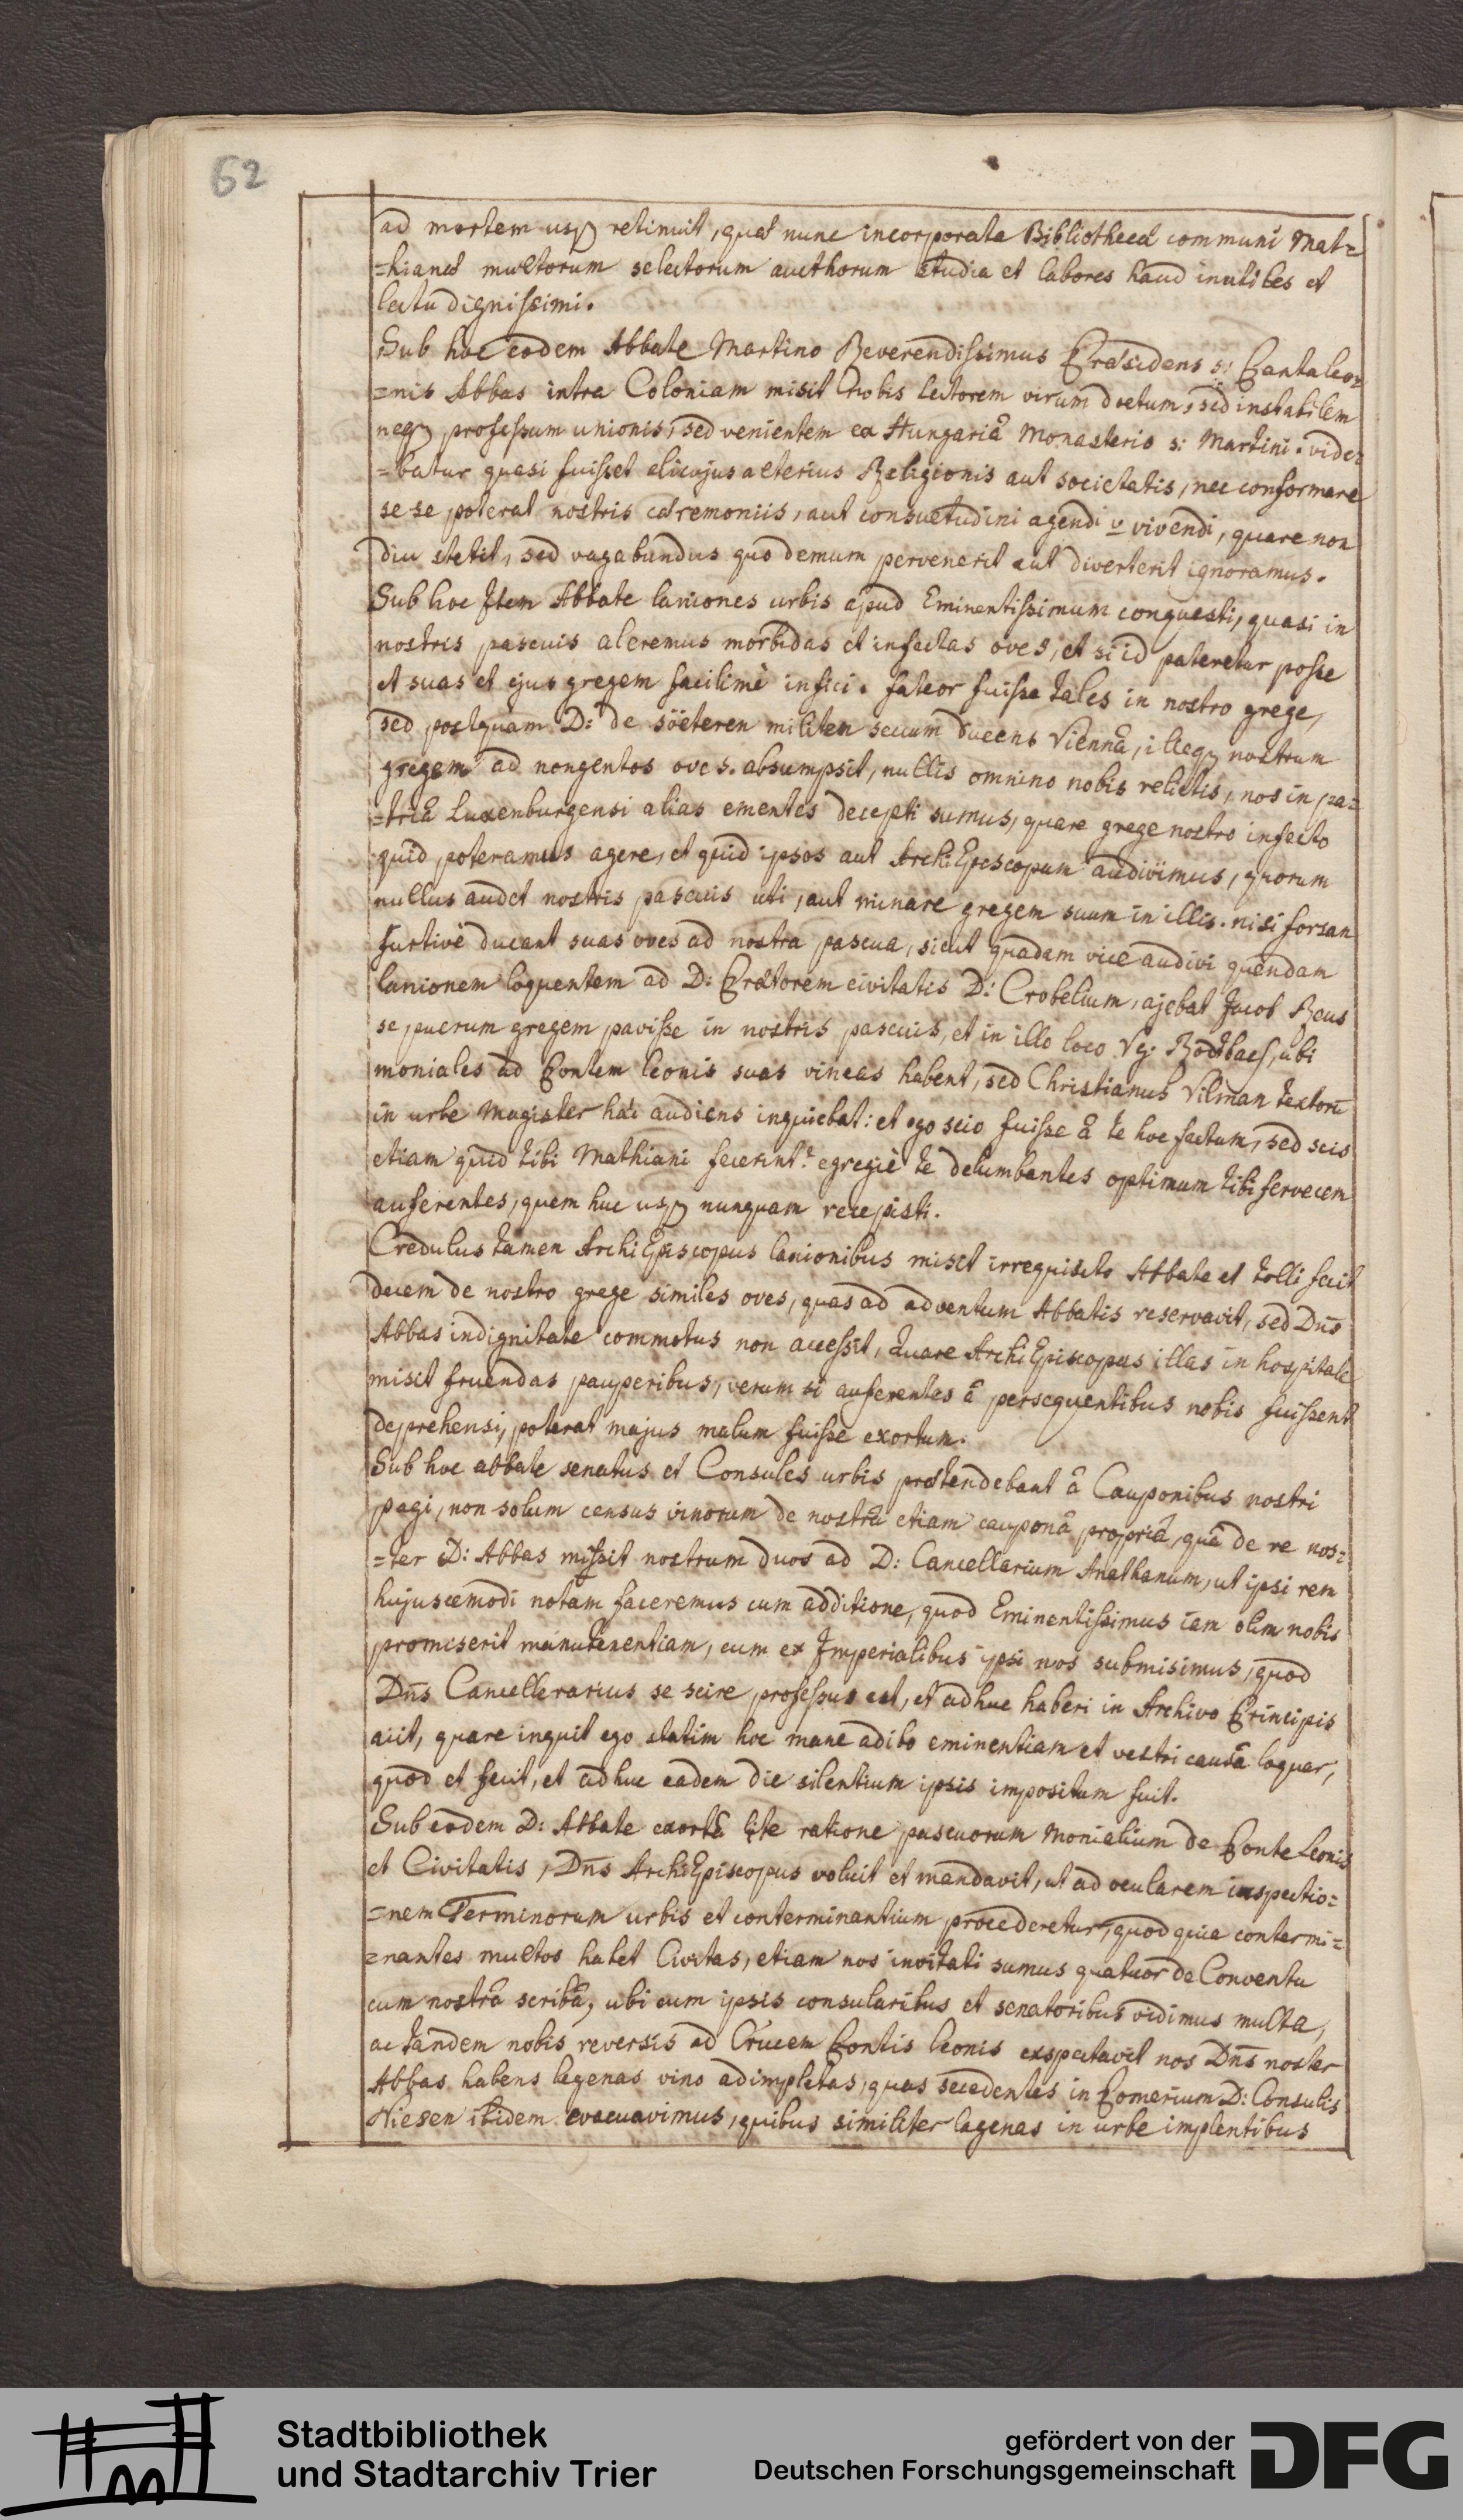 62
ad mortem usq retinuit, quæ nunc incorporata Bibliothecæ communi Mat=
=hianæ multorum selectorum aucthorum studia et labores haud inutiles et
lectu dignissimi.
Sub hoc eodem Abbate Martino Reverendissimus Præsidens s: Pantaleo=
=nis Abbas intra Coloniam misit nobis lectorem virum doctum, sed instabilem
neq professum unionis, sed venientem ex Hungariâ Monasterio s: Martini. vide=
=batur quasi fuisset alicujus alterius Religionis aut societatis, nec conformare
se se poterat nostris cæremoniis, aut consuetudini agendi v vivendi, quare non
diu stetit, sed vagabundus quo demum pervenerit aut diverterit ignoramus.
Sub hoc Item Abbate laniones urbis apud Eminentissimum conquesti, quasi in
nostris pascuis aleremus morbidas et infectas oves, et si id pateretur posse
et suas et ejus gregem facilimè infici. fateor fuisse tales in nostro grege,
sed postquam D: de söeteren militem secum ducens Viennâ, illeq nostrum
gregem ad nongentos oves. absumpsit, nullis omnino nobis relictis, nos in pa=
=triâ Luxenburgensi alias ementes decepti sumus, quare grege nostro infecto
quid poteramus agere, et quid ipsos aut ArchiEpiscopum audivimus, quorum
nullus audet nostris pascuis uti, aut minare gregem suum in illis. nisi forsan
furtivè ducant suas oves ad nostra pascua, sicut quadam vice audivi quendam
lanionem loquentem ad D: Prætorem civitatis D: Crobelium, ajebat Jacob Reus
se puerum gregem pavisse in nostris pascuis, et in illo loco Vg: Rodtbach, ubi
moniales ad Pontem leonis suas vineas habent, sed Christianus Vilman textorū
in urbe Magister hæc audiens inquiebat: et ego scio fuisse â te hoc factum, sed scis
etiam quid tibi Mathiani fecerint? egregiè te delumbantes optimum tibi fervecem
auferentes, quem huc usq nunquam recepisti.
Credulus tamen ArchiEpiscopus lanionibus misit irrequisito Abbate et tolli fecit
decem de nostro grege similes oves, quas ad adventum Abbatis reservavit, sed Dns̄
Abbas indignitate commotus non accessit, quare ArchiEpiscopus illas in hospitale
misit fruendas pauperibus, verum si auferentes â persequentibus nobis fuissent
deprehensi, poterat majus malum fuisse exortum.
Sub hoc abbate senatus et Consules urbis prætendebant â Cauponibus nostri
pagi, non solum census vinorum de nostrâ etiam cauponâ propriâ, quâ de re nos=
=ter D: Abbas missit nostrum duos ad D: Cancellarium Anethanum, ut ipsi rem
hujuscemodi notam faceremus cum additione, quod Eminentissimus iam olim nobis
promiserit manutenentiam, cum ex Imperialibus ipsi nos submisimus, quod
Dns̄ Cancellerarius se scire professus est, et adhuc haberi in Archivo Principis
ait, quare inquit ego statim hoc mane adibo eminentiam et vestri causâ loquar,
quod et fecit, et adhuc eadem die silentium ipsis impositum fuit.
Sub eodem D: Abbate exortâ lite ratione pascuorum Monialium de Ponte Leonis
et Civitatis, Dns̄ ArchiEpiscopus voluit et mandavit, ut ad ocularem inspectio=
=nem Terminorum urbis et conterminantium procederetur, quod quia contermi=
=nantes multos habet Civitas, etiam nos invitati sumus quatuor de Conventu
cum nostrâ scribâ, ubi cum ipsis consularibus et senatoribus vidimus multa,
ac tandem nobis reversis ad Crucem Pontis leonis exspectavit nos Dns̄ noster
Abbas habens legenas vino adimpletas, quas secedentes in Pomerium D: Consulis
Niesen ibidem evacuavimus, quibus similiter lagenas in urbe implentibus
Stadtbibliothek
und Stadtarchiv Trier
gefördert von der
Deutschen Forschungsgemeinschaft
DFG